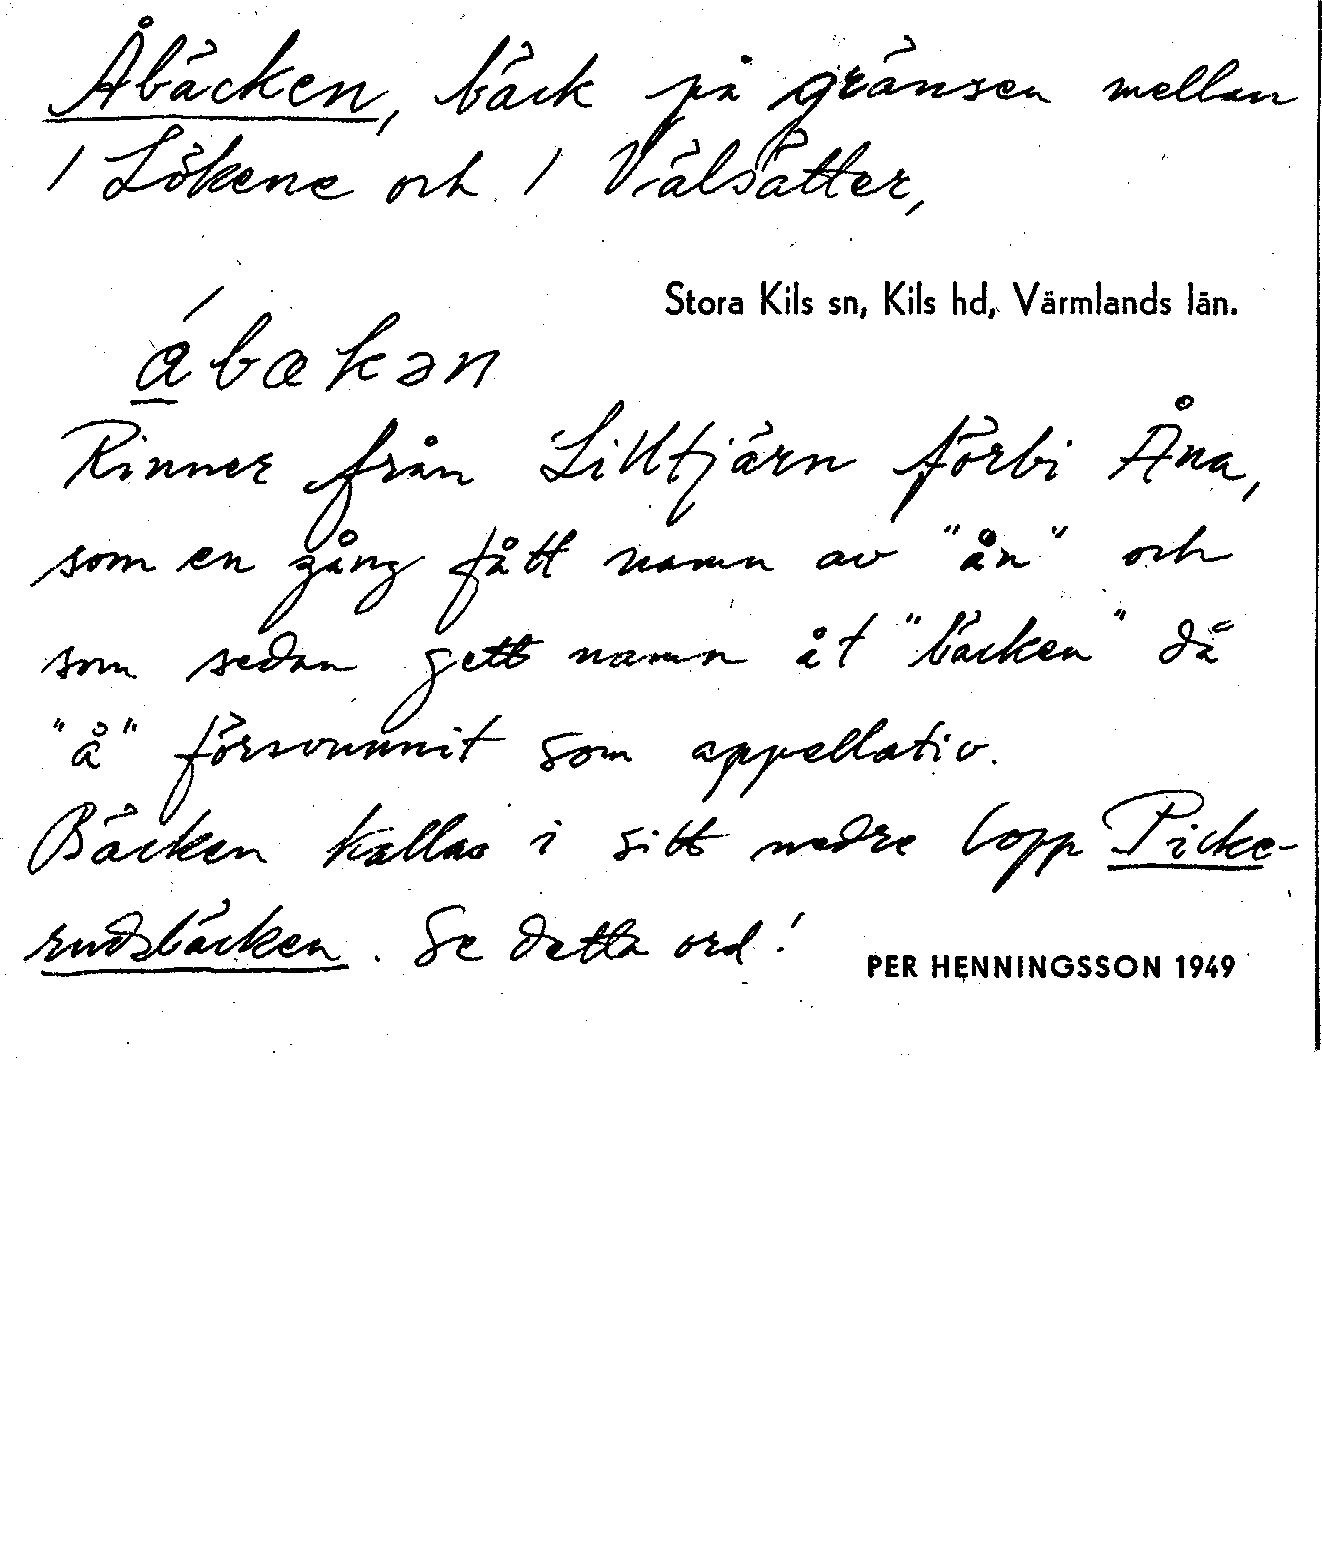 Åbäcken, bäck på gränsen mellan
/ Lökene och / Välsätter,
Stora Kils sn, Kils hd, Värmlands län.
á̱bækən
Rinner från Lilltjärn förbi Åna,
som en gång fått namn av "ån" och
som sedan gett namn åt "bäcken" då
"å" försvunnit som appellativ.
Bäcken kallas i sitt nedre lopp Picke-
rudsbäcken. Se detta ord!
PER HENNINGSSON 1949